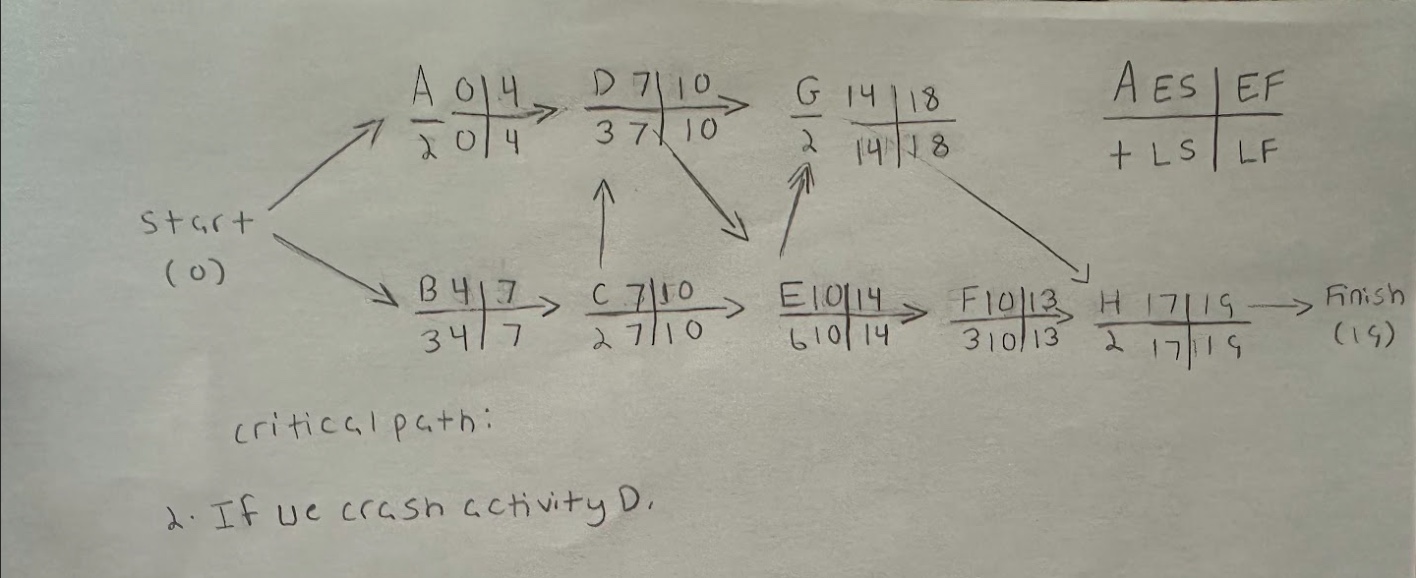 A 0 4
2 0 4
D 7 10
3 7 10
G 14 18
2 14 18
A ES EF
t LS LF
Start
(0)
B 4 7
3 4 7
C 7 10
2 7 10
E 10 14
6 10 14
F 10 13
3 10 13
H 17 19
2 17 19
Finish
(19)
critical path:
2. If we crash activity D.